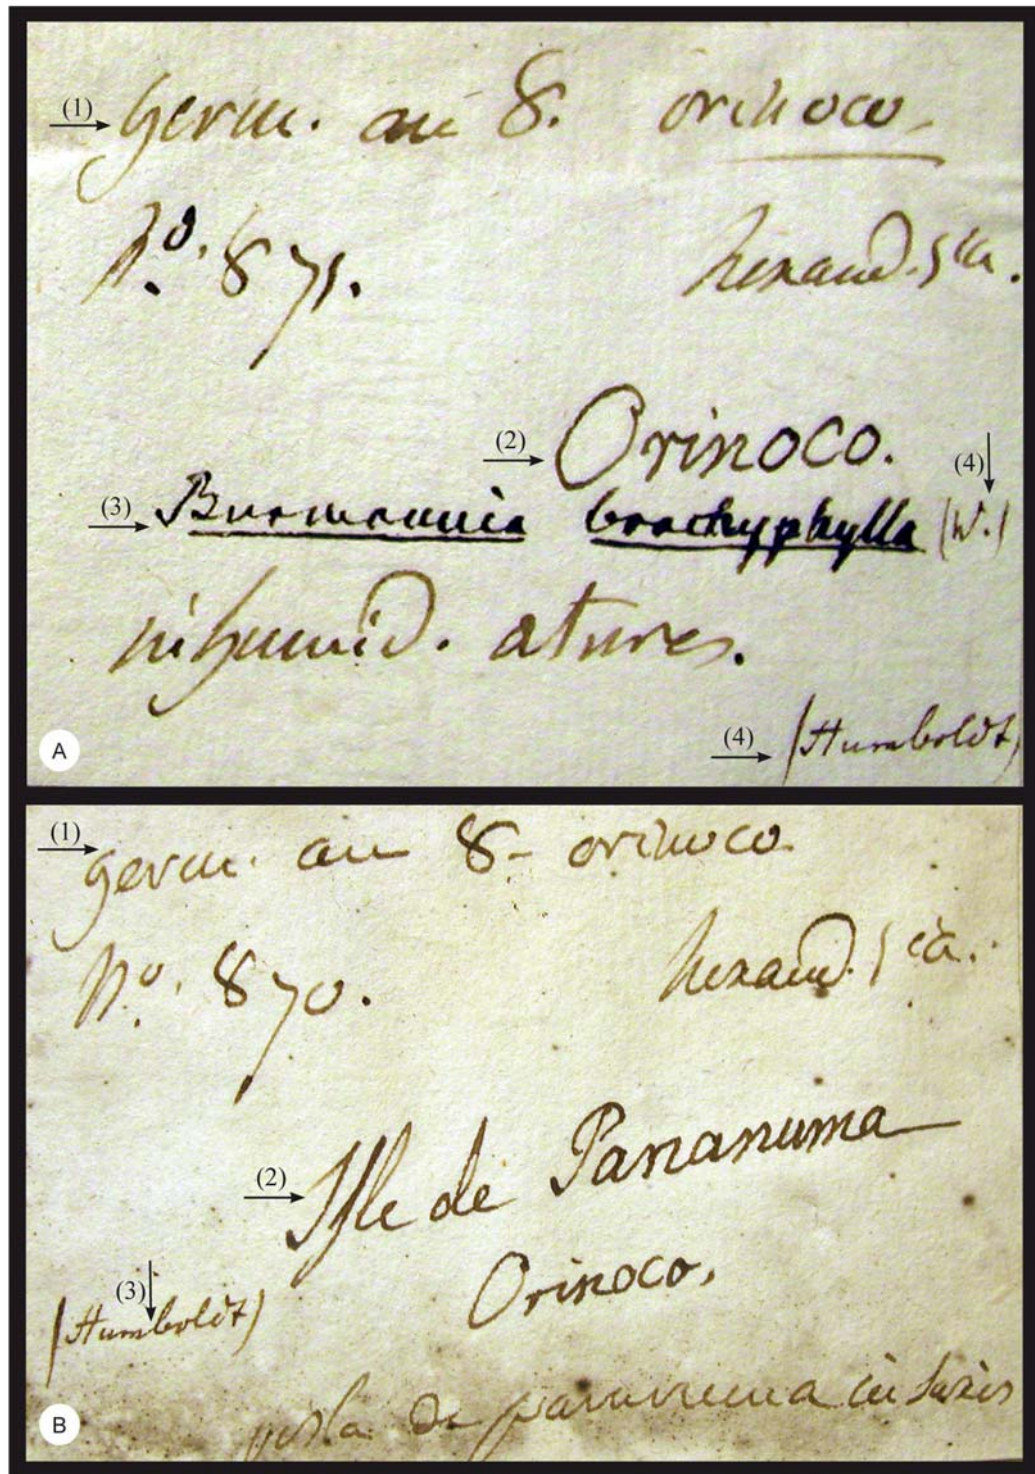 (1) germ. an 8. orinoco.
No. 871. hexand. 1ia.
(2) Orinoco. (4)
(3) Burmannia brachyphylla (W.)
in humid. atures.
A (4) (Humboldt)
(1) germ. an 8. orinoco
No. 870. hexand. 1ia.
(2) Isle de Pananuma
Orinoco.
(3)
(Humboldt)
B isla de panumuna in